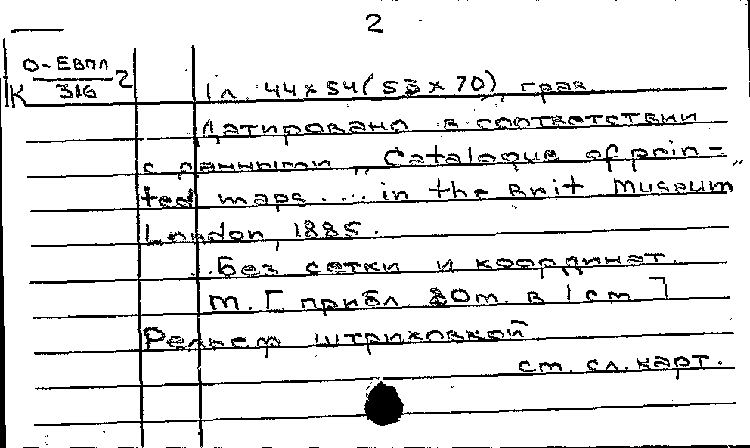 2
О-Евпл 2
К 316
1 л. 44×54 (53×70), грав.
Датировано в соответствии
с данными „Catalogue of prin-
ted maps .... in the Brit Museum"
London, 1885.
Без сетки и координат.
М. [прибл. 80 м. в 1 см]
Рельеф штриховкой
см. сл. карт.